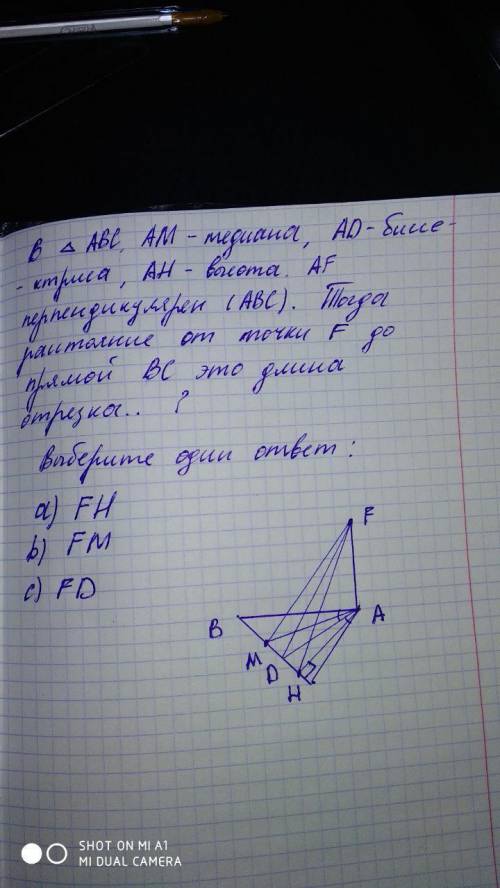 В △ ABC, AM - медиана, AD - биссе-
- ктриса, AH - высота. AF
перпендикулярен (ABC). Тогда
расстояние от точки F до
прямой BC это длина
отрезка.. ?
Выберите один ответ:
a) FH
b) FM
c) FD
F
B
A
M
D
H
SHOT ON MI A1
MI DUAL CAMERA